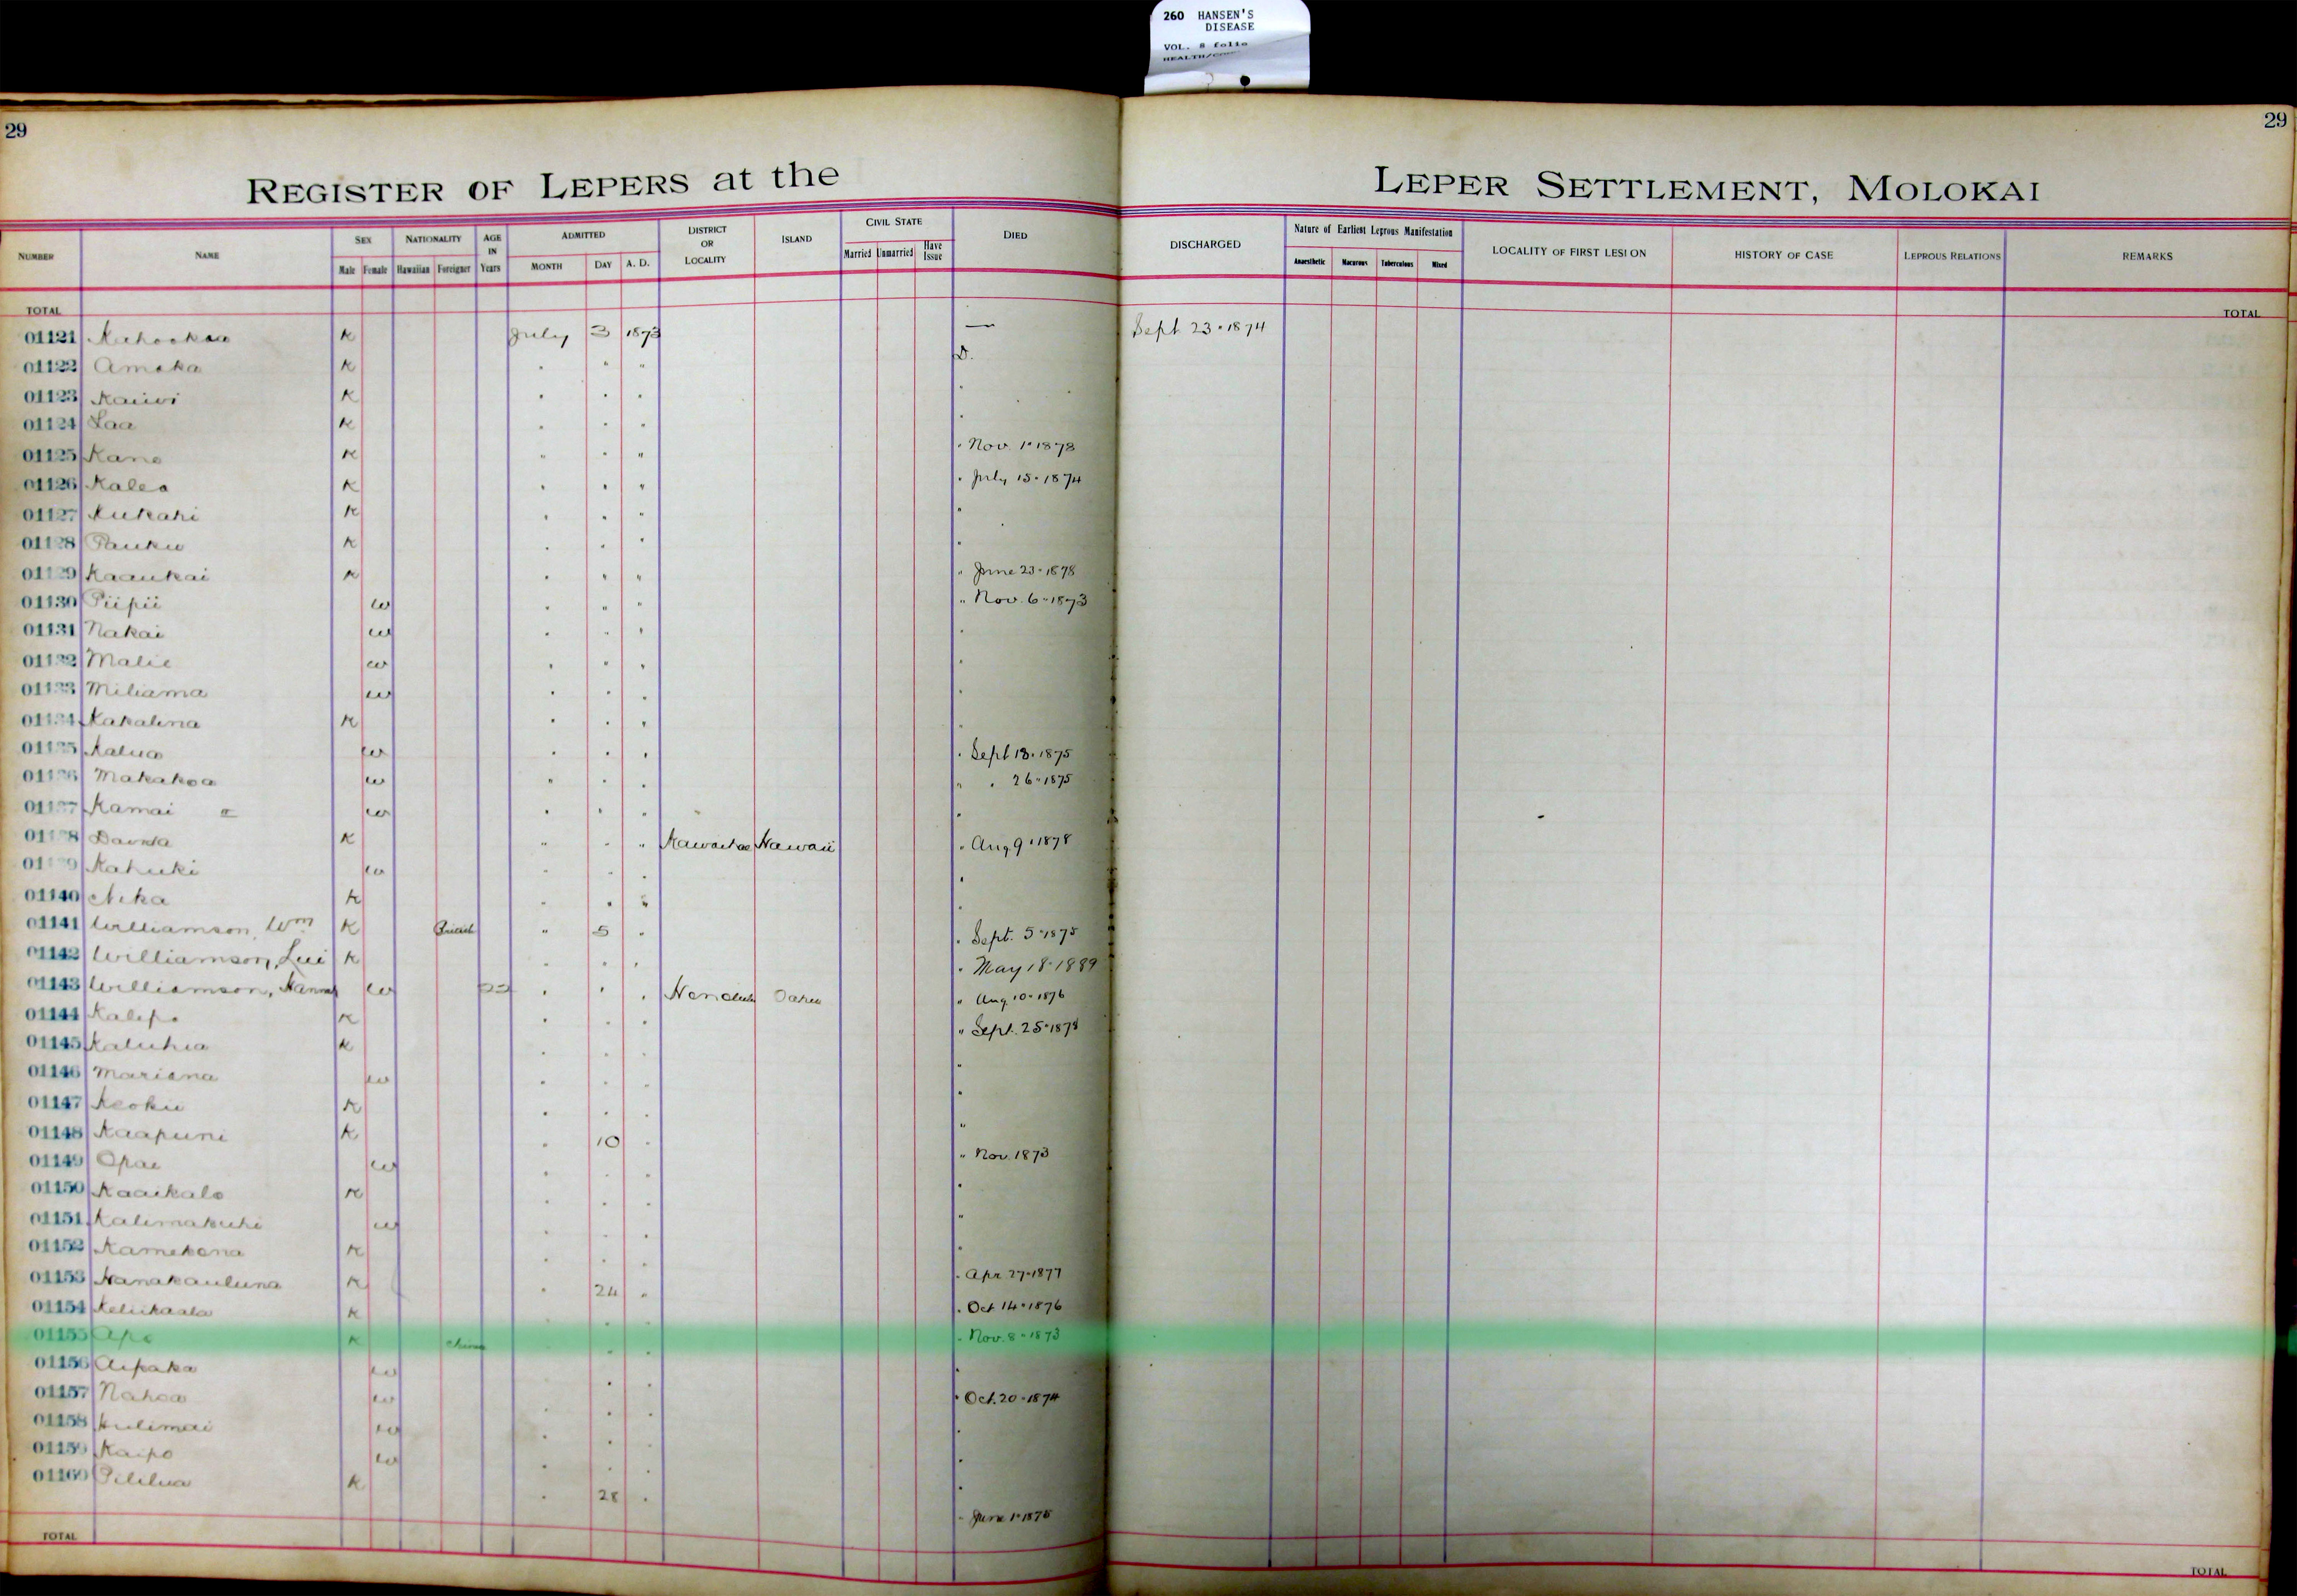 260 HANSEN'S
DISEASE
VOL. 8 folio
29
29
REGISTER OF LEPERS at the
LEPER SETTLEMENT, MOLOKAI
NUMBER NAME SEX Male Female NATIONALITY Hawaiian Foreigner AGE IN Years ADMITTED MONTH DAY A. D. DISTRICT OR LOCALITY ISLAND CIVIL STATE Married Unmarried Have Issue DIED DISCHARGED Nature of Earliest Leprous Manifestation Anaesthetic Macurous Tuberculous Mixed LOCALITY OF FIRST LESION HISTORY OF CASE LEPROUS RELATIONS REMARKS
TOTAL TOTAL
01121 K July 3 1873 — Sept 23 · 1874
01122 Amaka K " " " D.
01123 Kaiwi K " " " "
01124 Laa K " " " "
01125 Kane K " " " " Nov. 1 · 1878
01126 Kalea K " " " " July 15 · 1874
01127 Kukahi K " " " "
01128 Pauku K " " " "
01129 Kaaukai K " " " " June 23 · 1878
01130 Piipii w " " " " Nov. 6 · 1873
01131 Nakai w " " " "
01132 Malie w " " " "
01133 Miliama w " " " "
01134 Kakalina K " " " "
01135 Kalua w " " " " Sept 18 · 1875
01136 Makakoa w " " " " " 26 · 1875
01137 Kamai w " " " "
01138 K " " " Kawaihae Hawaii " Aug 9 · 1878
01139 Kahuki w " " " "
01140 Nika K " " " "
01141 Williamson, Wm K British " 5 " " Sept. 5 · 1875
01142 Williamson, Lui K " " " " May 18 · 1889
01143 Williamson, Hannah w " " " Honolulu Oahu " Aug. 10 · 1876
01144 Kalepo K " " " " Sept. 25 · 1878
01145 Kaluhia K " " " "
01146 Mariana w " " " "
01147 Keoku K " " " "
01148 Kaapuni K " 10 " "
01149 Opae w " " " " Nov. 1873
01150 Kaaikalo K " " " "
01151 Kalimakuhi w " " " "
01152 Kamekona K " " " "
01153 Hanakauluna K " 24 " " Apr 27 · 1877
01154 Keliikaala K " " " " Oct 14 · 1876
01155 Apo K China " " " " Nov. 8 · 1873
01156 Aipaka w " " " "
01157 Nahoa w " " " " Oct. 20 · 1874
01158 Hulimai w " " " "
01159 Kaipo w " " " "
01160 Pililua K " 28 " " June 1 · 1875
TOTAL TOTAL